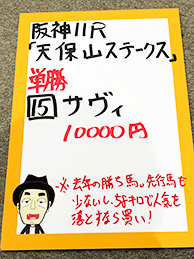 阪神11R
「天保山ステークス」
単勝
15 サヴィ
10000円
※去年の勝ち馬。先行馬も
少ないし、58キロで人気を
落とすなら買い!